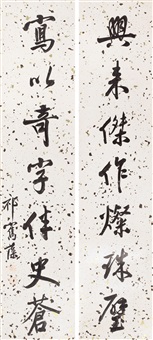 興來傑作燦珠璧
寫以奇字侔史蒼
祁寯藻